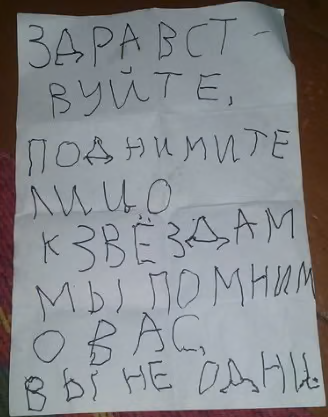 ЗДРАВСТ-
ВУЙТЕ,
ПОДНИМИТЕ
ЛИЦО
К ЗВЁЗДАМ
МЫ ПОМНИМ
О ВАС,
ВЫ НЕ ОДНИ.